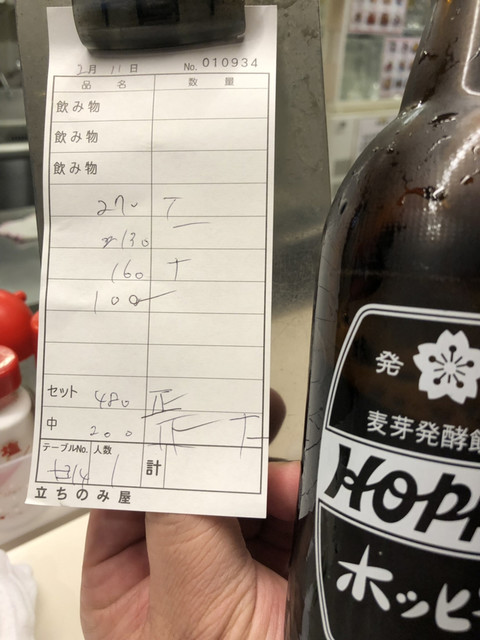 2月 11日 No. 010934
品 名 数 量
飲み物
飲み物
飲み物
270 丅
130 一
160 丅
100 一
セット 480 正
中 200 正 丅
テーブルNo. 人数 計
1
立ちのみ屋
発
麦芽発酵飲
HOPP
ホッピ